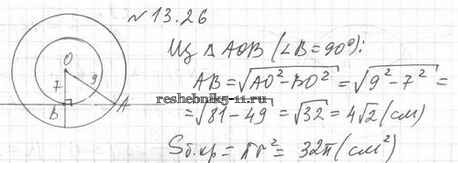 № 13.26
Из Δ AOB (∠B = 90°):
AB = √AO² - BO² = √9² - 7² =
= √81 - 49 = √32 = 4√2 (см)
reshebniks-11.ru
Sб.кр = πr² = 32π (см²)
O
9
7
B
A